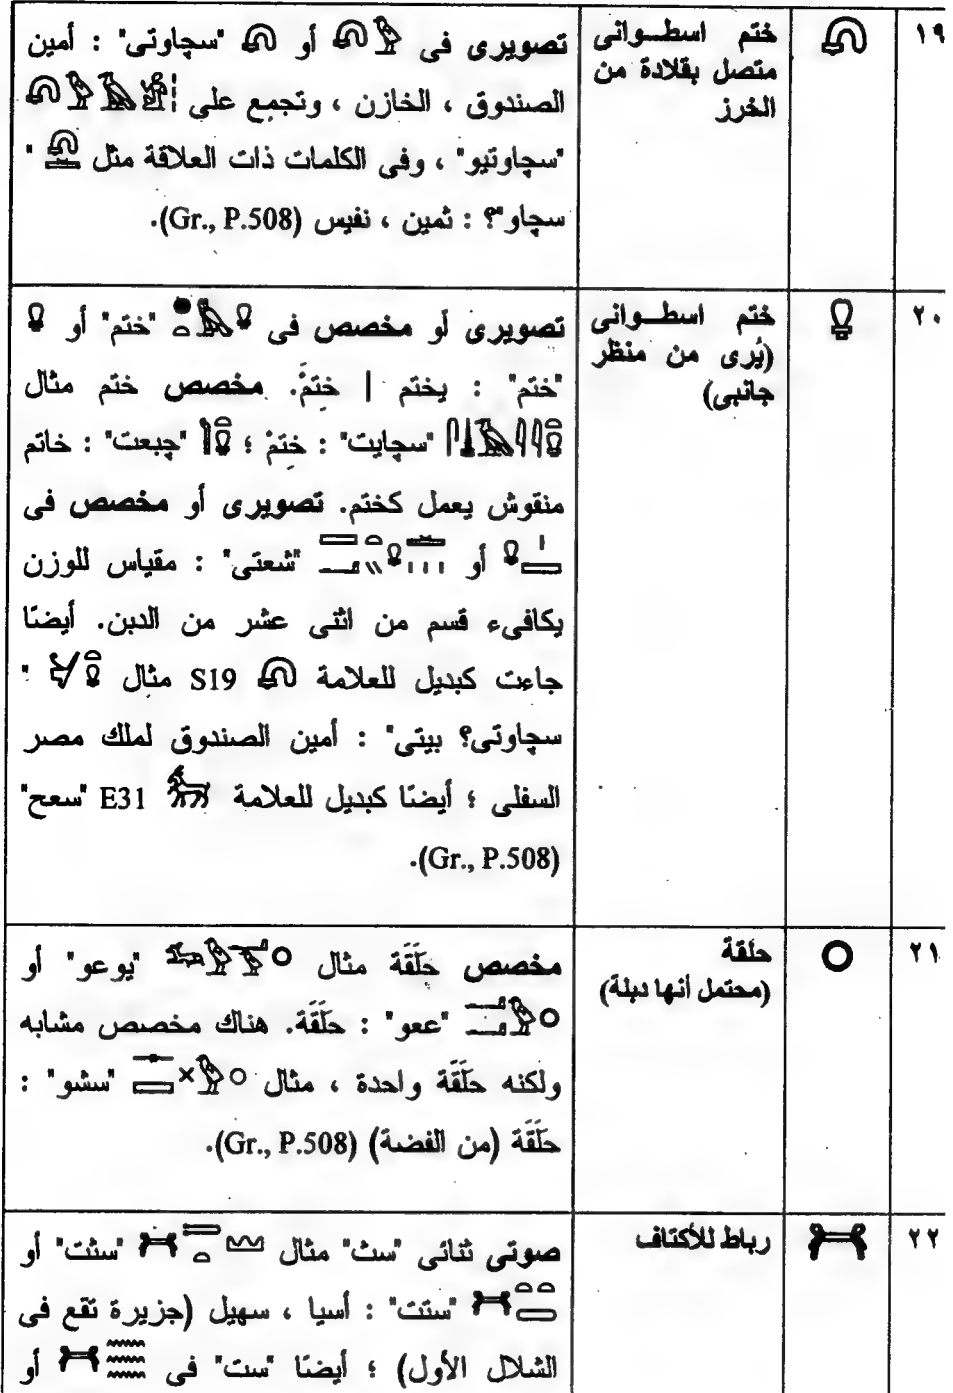 ١٩
ختم اسطوانى
متصل بقلادة من
الخرز
تصويرى فى أو "سچاوتى" : أمين
الصندوق ، الخازن ، وتجمع على
"سچاوتيو" ، وفى الكلمات ذات العلاقة مثل "
سچاو"؟ : ثمين ، نفيس (Gr., P.508).
٢٠
ختم اسطوانى
(يُرى من منظر
جانبى)
تصويرى أو مخصص فى "ختم" أو
"ختم" : يختم | ختمَ. مخصص ختم مثال
"سچايت" : ختمْ ؛ "چبعت" : خاتم
منقوش يعمل كختم. تصويرى أو مخصص فى
أو "شعتى" : مقياس للوزن
يكافىء قسم من اثنى عشر من الدبن. أيضًا
جاءت كبديل للعلامة S19 مثال "
سچاوتى؟ بيتى" : أمين الصندوق لملك مصر
السفلى ؛ أيضًا كبديل للعلامة E31 "سعح"
(Gr., P.508).
٢١
حلقة
(محتمل أنها دبلة)
مخصص حَلَقَة مثال "يوعو" أو
"ععو" : حَلَقَة. هناك مخصص مشابه
ولكنه حَلَقَة واحدة ، مثال "سشو" :
حَلَقَة (من الفضة) (Gr., P.508).
٢٢
رباط للأكتاف
صوتى ثنائى "سث" مثال "سثت" أو
"ستت" : أسيا ، سهيل (جزيرة تقع فى
الشلال الأول) ؛ أيضًا "ست" فى أو